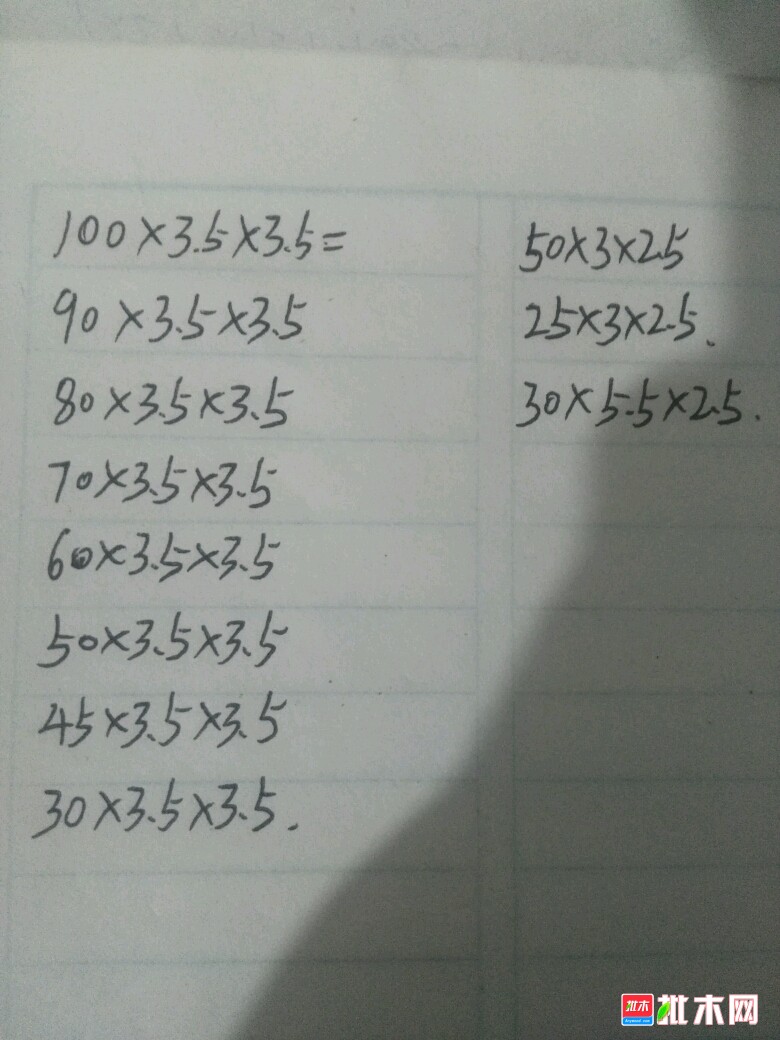 100×3.5×3.5=
90×3.5×3.5
80×3.5×3.5
70×3.5×3.5
60×3.5×3.5
50×3.5×3.5
45×3.5×3.5
30×3.5×3.5.
50×3×2.5
25×3×2.5.
30×5.5×2.5.
批木网